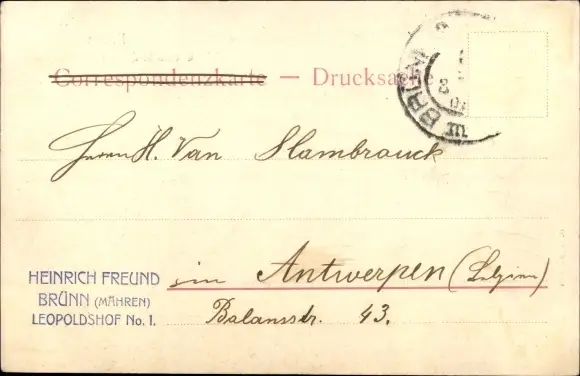 Correspondenzkarte — Drucksache
Herrn H. Van Slambrouck
in Antwerpen (Belgien)
Balansstr. 43.
HEINRICH FREUND
BRÜNN (MÄHREN)
LEOPOLDSHOF No. 1.